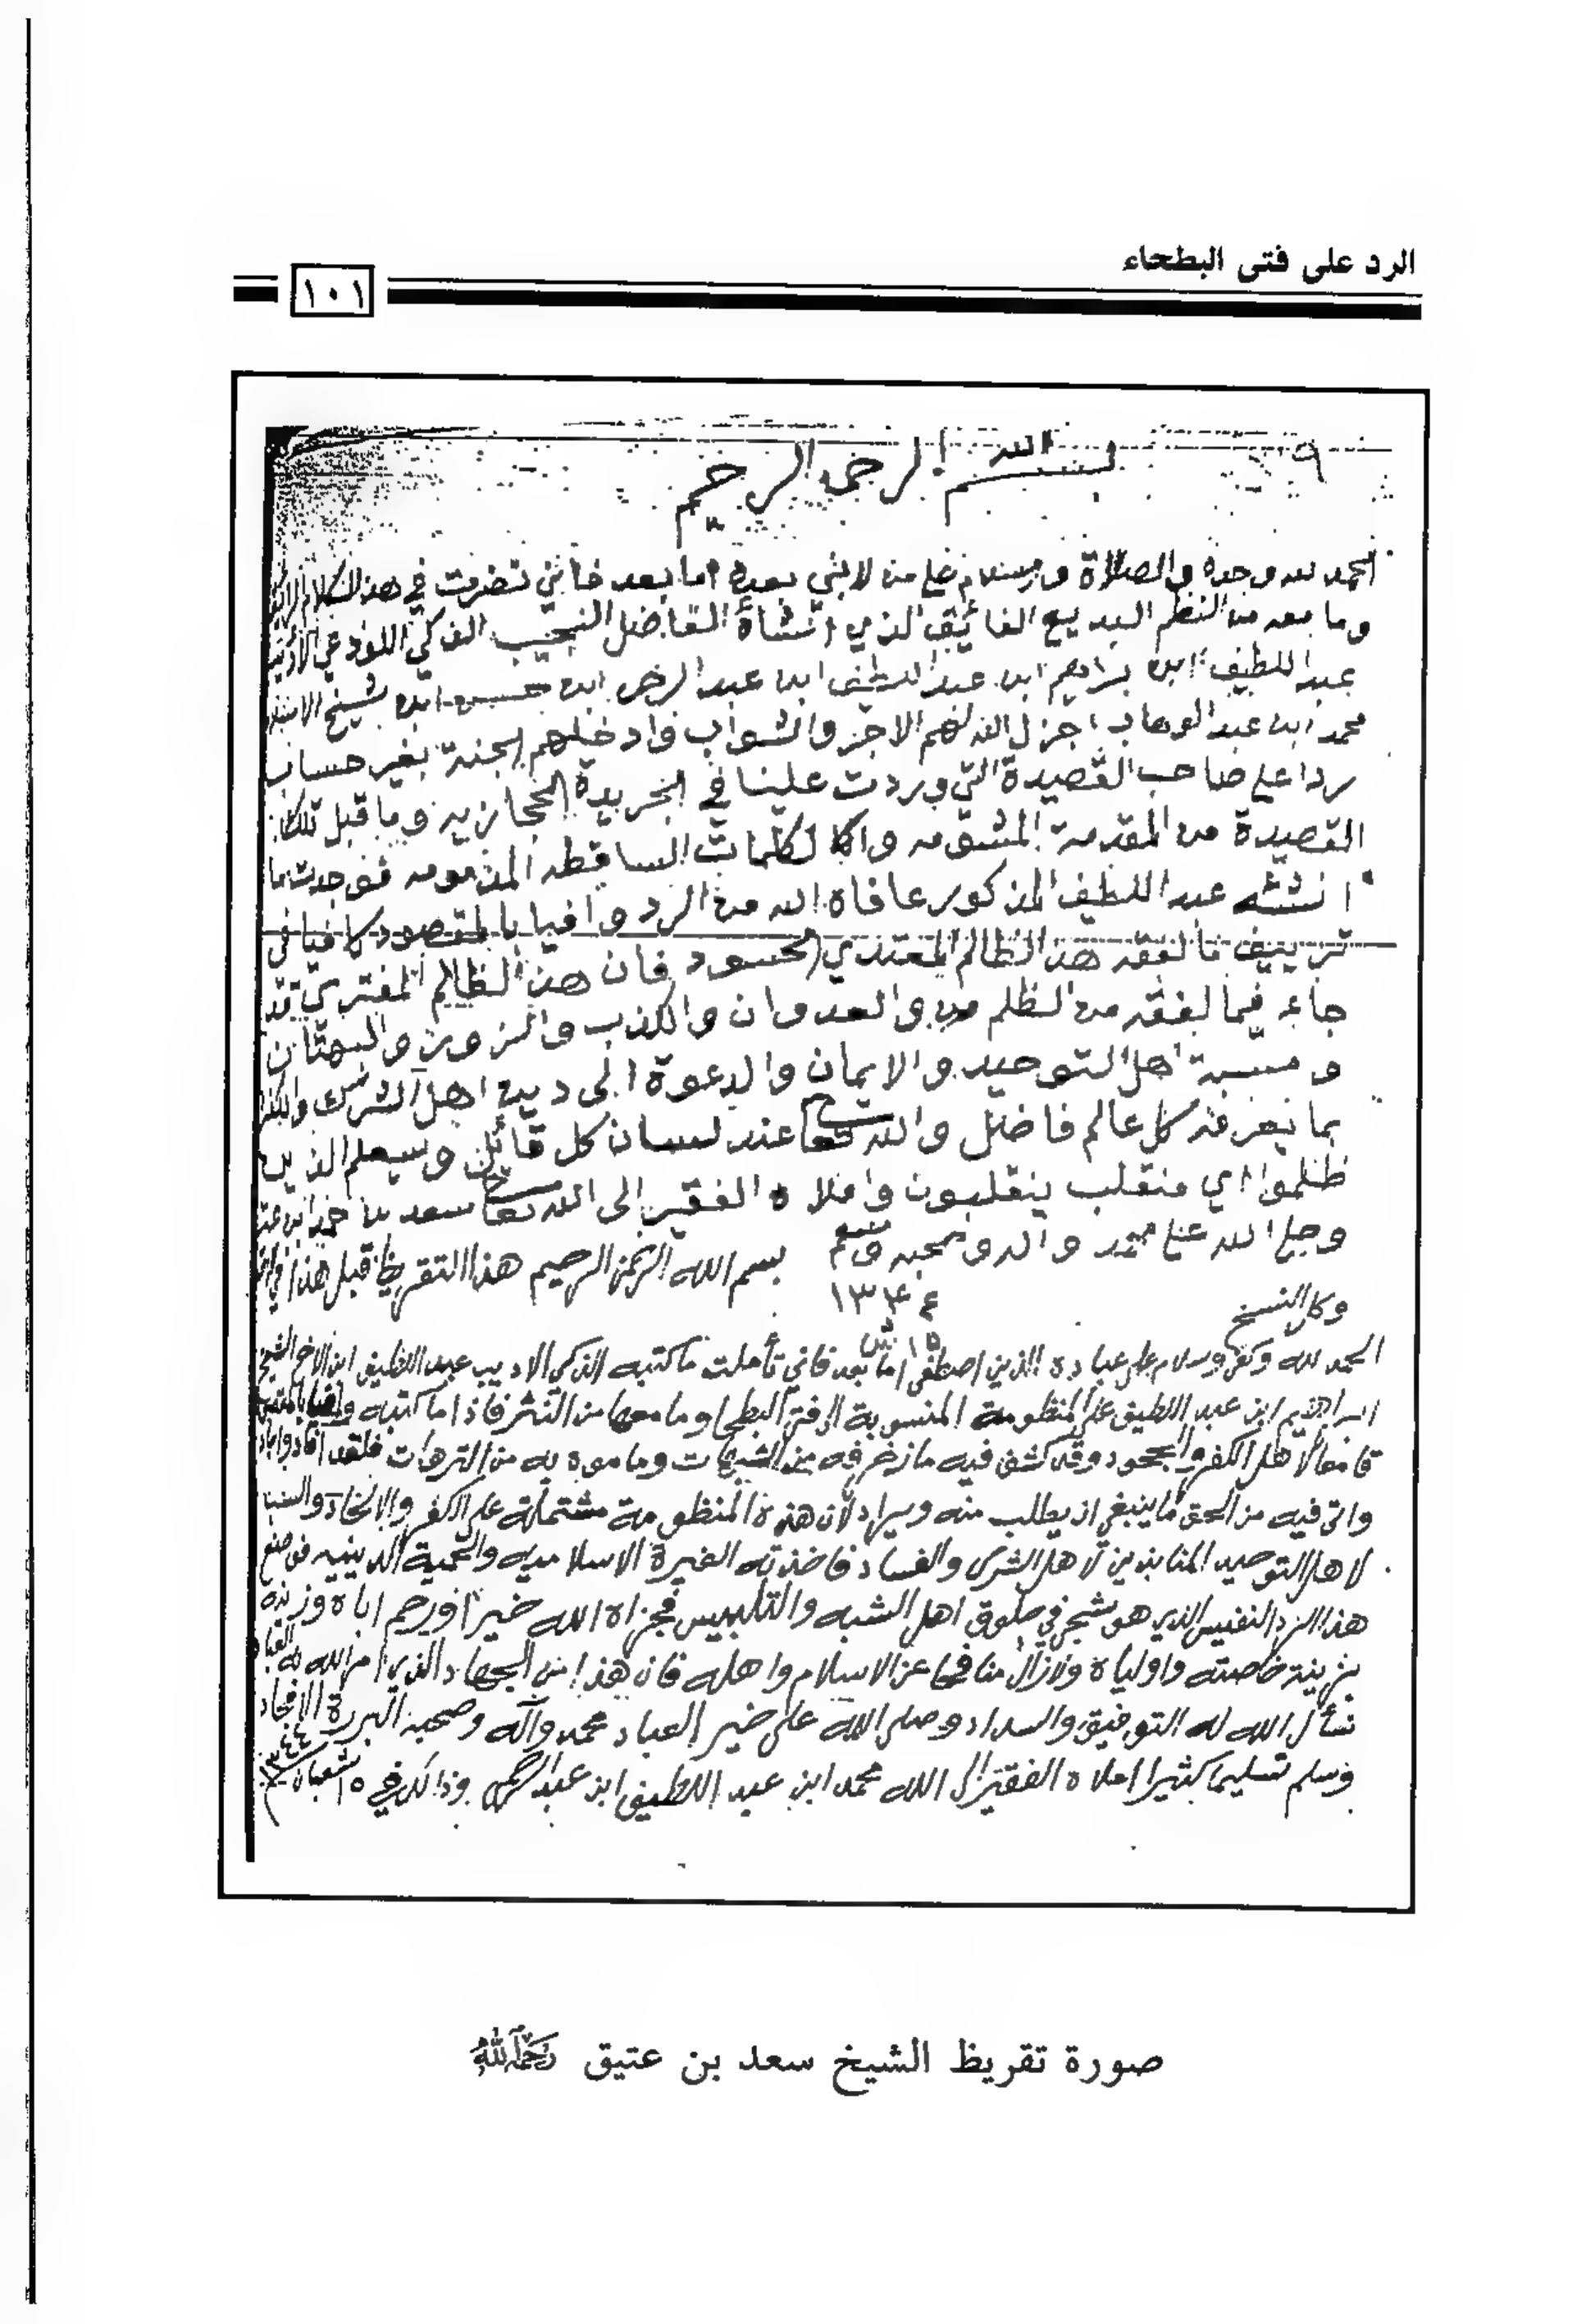 الرد على فتى البطحاء
١٠١
بسم الله الرحمن الرحيم
الحمد لله وحده والصلاة والسلام على من لا نبي بعده اما بعد فانني نضرت في هذا الكلام
وما معه من النظم البديع الفائق الذي انشأه الفاضل النجيب الذكي اللوذعي
عبد اللطيف ابن براهيم ابن عبد اللطيف ابن عبد الرحمن ابن حسن ابن شيخ الاسلام
محمد ابن عبد الوهاب اجزل الله لهم الاجر والثواب وادخلهم الجنة بغير حساب
ردا على صاحب القصيدة التي وردت علينا في الجريدة الحجازيه وما قبل تلك
القصيدة من المقدمة المشومه والكلمات الساقطه المذمومه فوجدت ما
انشئه عبد اللطيف المذكور عافاه الله من الرد وافيا بالمقصود كافيا في
تزييف ما لفقه هذا الظالم المعتدي الحسود فان هذا الظالم المفتري قد
جاء فيما لفقه من الظلم والعدوان والكذب والزور والبهتان
ومسبة اهل التوحيد والايمان والدعوة الى دين اهل الشرك والكفر
بما يعرفه كل عالم فاضل والله تعا عند لسان كل قائل وسيعلم الذين
ظلموا اي منقلب ينقلبون واملاه الفقير الى الله تعا سعد بن حمد ابن
وصلى الله على محمد واله وصحبه وسلم
١٣٤٤
١٥ ش
بسم الله الرحمن الرحيم هذا التقريظ قبل هذا
وكل النسخ
الحمد لله وكفى وسلام على عباده الذين اصطفى اما بعد فاني تأملت ما كتبه الذكي الاديب عبد اللطيف ابن الاخ الشيخ
ابراهيم ابن عبد اللطيف على المنظومة المنسوبة الى فتى البطحا وما معها من النثر فاذا ما كتبه وافيا بالمقصود
قامعا لأهل الكفر والجحود وقد كشف فيه ما زخرفه من الشبهات وما موه به من الترهات فلقد افاد واجاد
واتى فيه من الحق ما ينبغي ان يطلب منه ويراد لأن هذه المنظومة مشتملة على الكفر والالحاد والسباب
لاهل التوحيد المنابذين لاهل الشرك والفساد فاخذته الغيرة الاسلاميه والحمية الدينيه فوضع
هذا الرد النفيس الذي هو شجى في حلوق اهل الشبه والتلبيس فجزاه الله خيرا ورحم اباه وزينه
بزينة خاصته واولياه ولازال منافحا عن الاسلام واهله فان هذا من الجهاد الذي امر الله به العباد
نسأل الله له التوفيق والسداد وصلى الله على خير العباد محمد وآله وصحبه البررة الامجاد
وسلم تسليما كثيرا املاه الفقير الى الله محمد ابن عبد اللطيف ابن عبد الرحمن وذالك في ١٥ شعبان ١٣٤٤
صورة تقريظ الشيخ سعد بن عتيق رحمه الله